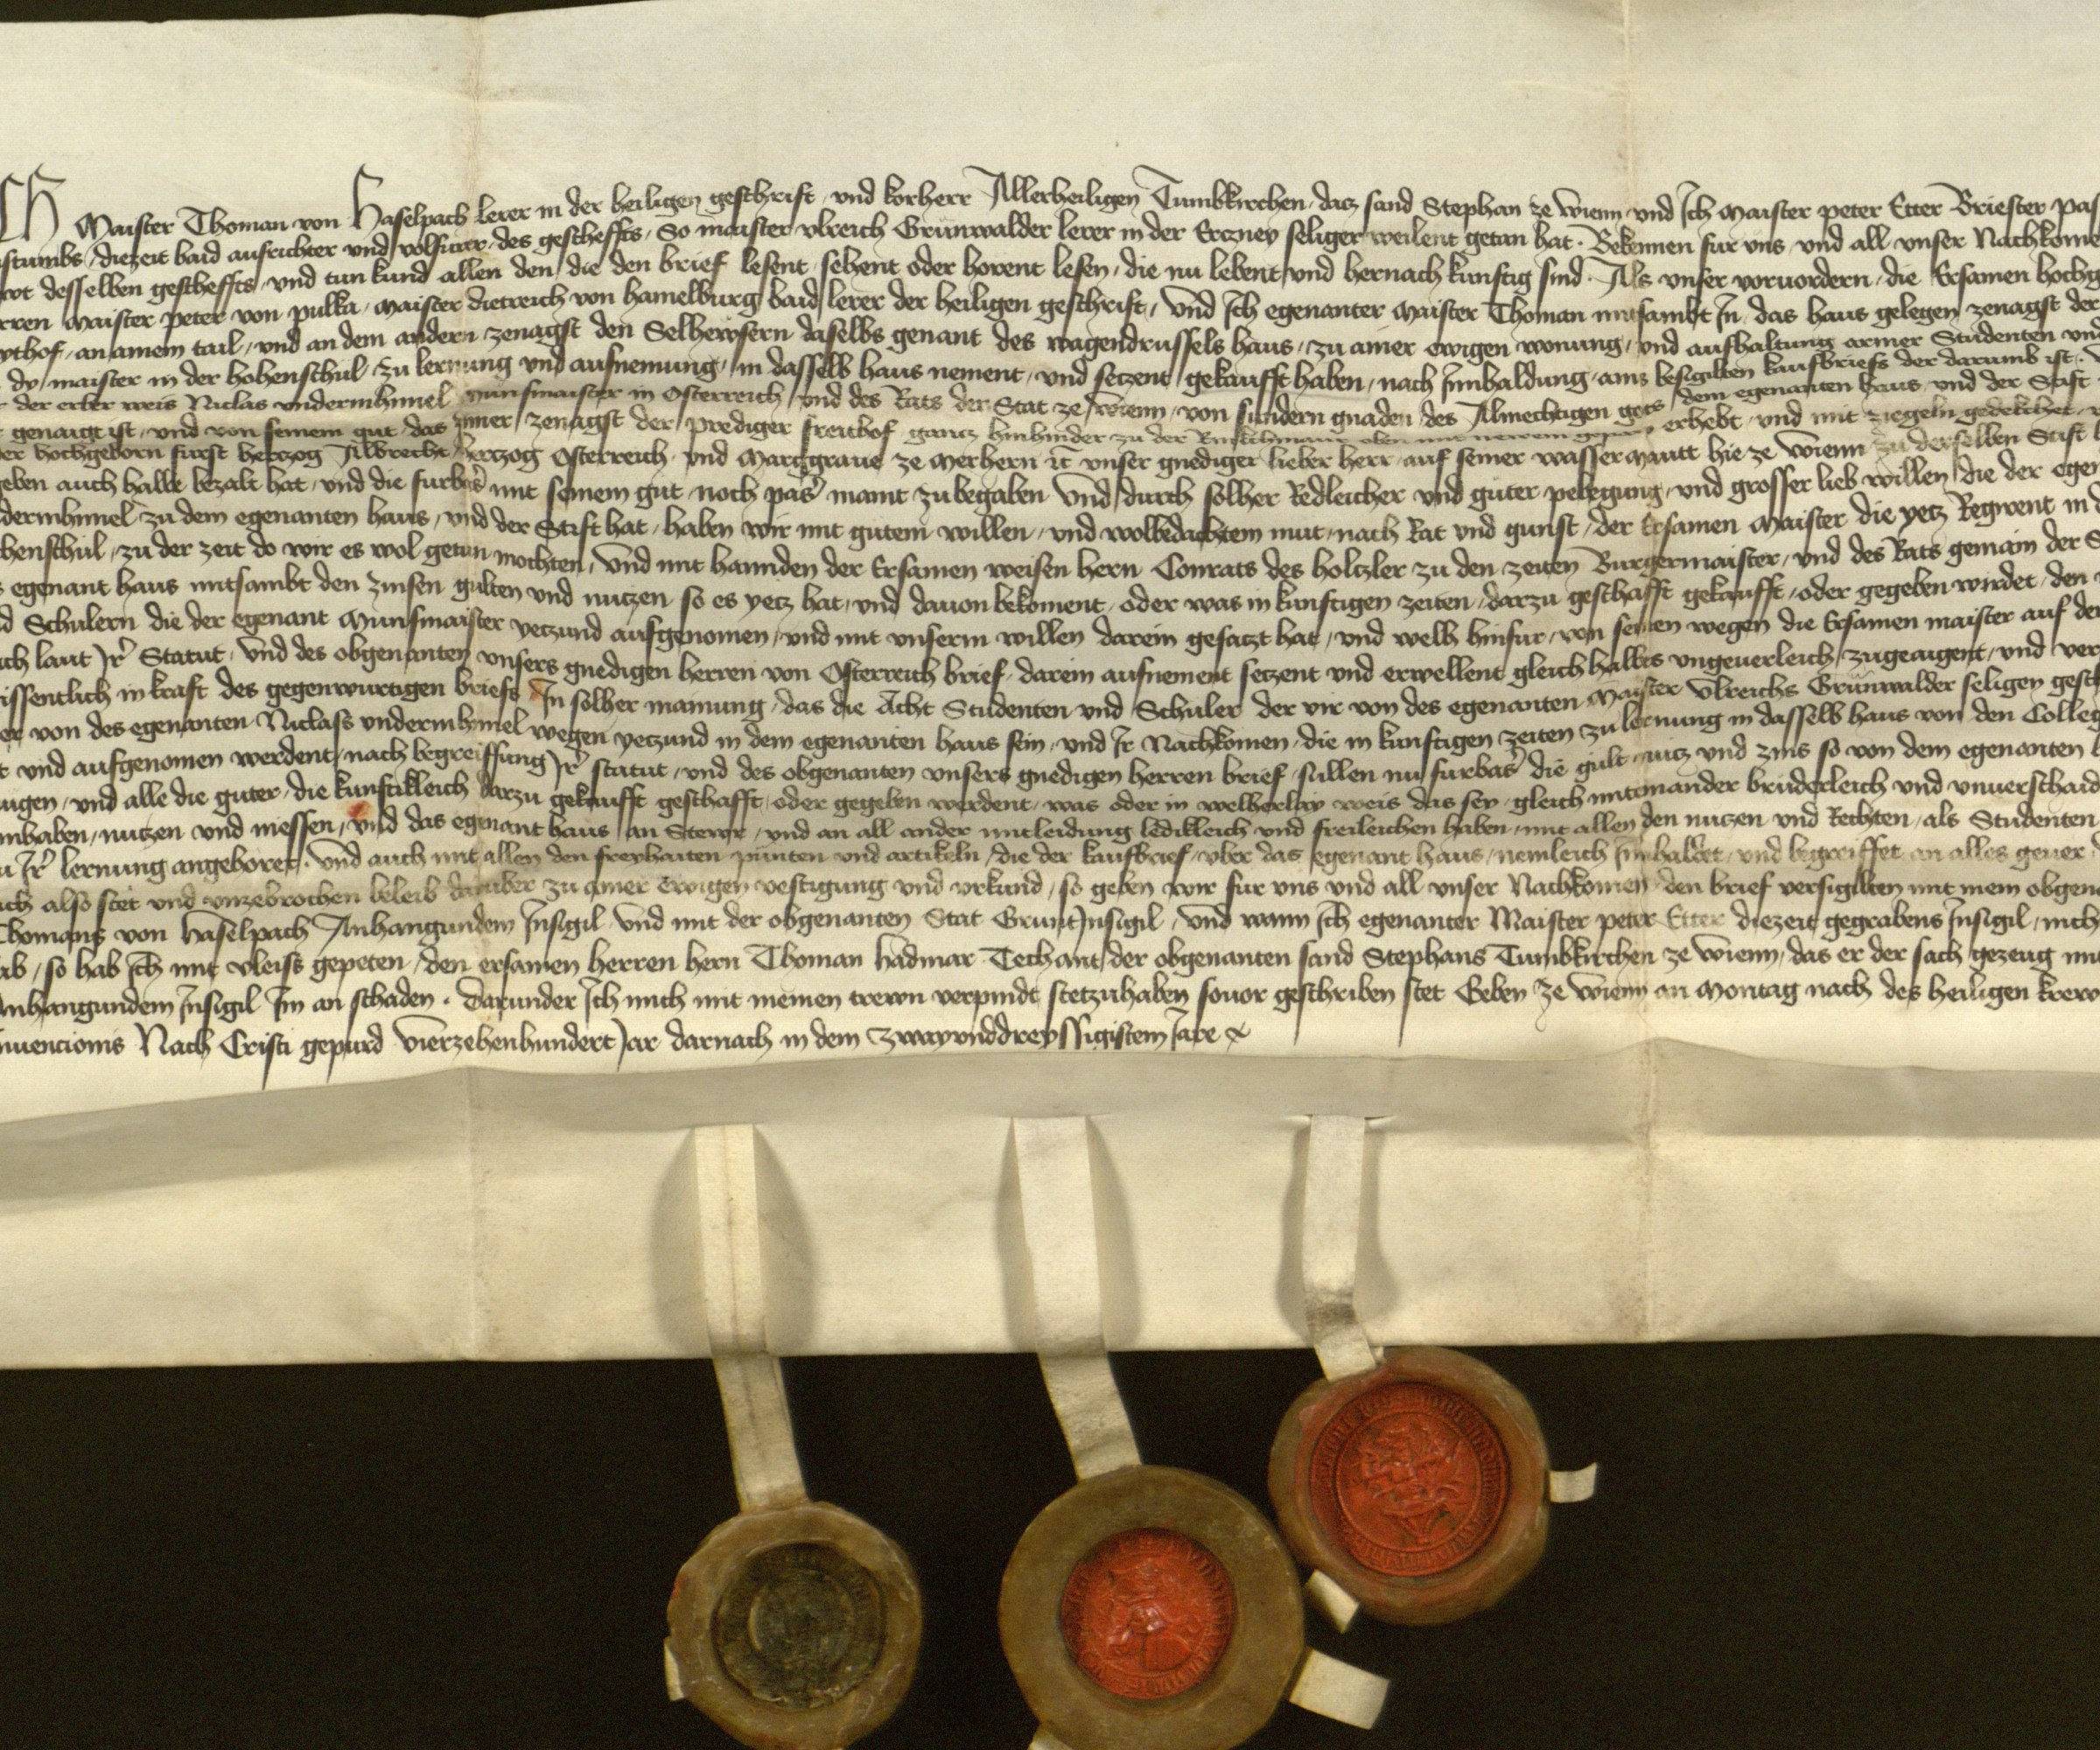 Ich Maister Thoman von Haselpach lerer in der heiligen geschrift, vnd korherr Allerheiligen Tumbkirchen, daz sand Stephan ze wienn, vnd Ich Maister peter Etter Briester pas
stumbs, diezeit baid ausrichter vnd volfurer, des gescheffts, So maister vlreich Grünwalder lerer in der Erczney seliger weilent getan hat. Bekennen fur vns, vnd all vnser Nachkome
desselben gescheffts, vnd tun kund allen den, die den brief lesent, sehent oder horent lesen, die nu lebent, vnd hernach kunftig sind. Als vnser voruordern, die Ersamen hochg
rren Maister peter von pulka, Maister dietreich von hamelburg baid lerer der heiligen geschrift, vnd Ich egenanter Maister Thoman mitsambt In, das haus gelegen zenagst der
ythof, an ainem tail, vnd an dem andern zenagst den Selhewsern daselbs genant des wagendrussels haus, zu ainer ewigen wonung, vnd aufhaltung armer Studenten vnd
dy maister in der hohenschul, zu lernung vnd aufnemung, in dasselb haus nement, vnd seczent, gekaufft haben, nach Innhaldung, ains besigilten kaufbriefs der darumb ist.
der erber weis Niclas vndermhimel munsmaister in Osterreich, vnd des Rats der Stat ze wienn, von sundern gnaden des Almechtigen gots, dem egenanten haus, vnd der Stift
genaigt ist, vnd von seinem gut, das zimer, zenagst der prediger freithof gancz hinhinder zu der erhebt, vnd mit ziegeln gedekchet,
der hochgeborn furst herczog Albrecht herczog Osterreich, vnd Marggraue ze Merhern vnser gnediger lieber herr, auf seiner wassermautt hie ze wienn, zu derselben Stift
geben auch halbe bezalt hat, vnd die furbas mit seinem gut, noch pas maint zubegaben Vnd durch solher Redleicher vnd guter pebegung, vnd grosser lieb willen, die der egen
dermhimel, zu dem egenanten haus, vnd der Stift hat, haben wir mit gutem willen, vnd wolbedachtem mut, nach Rat vnd gunst, der Ersamen Maister die yetz Regirent in d
henschul, zu der zeit do wir es wol getun mochten, Vnd mit hannden der Ersamen weisen hern Conrats des holczler zu den zeiten Burgermaister, vnd des Rats gemain der S
egenant haus mitsambt den zinsen gulten vnd nuczen so es yetz hat, vnd dauon bekoment, oder was in kunftigen zeiten, darzu geschafft gekaufft, oder gegeben wirdet, den
d Schulern die der egenant Munsmaister yeczund aufgenomen, vnd mit vnserm willen darein gesaczt hat, vnd welh hinfur, von seinen wegen die Ersamen maister auf der
ach laut Ir Statut, Vnd des obgenanten vnsers gnedigen herren von Osterreich brief, darein aufnement seczent vnd erwellent gleich halbes vngeuerleich, zugeaigent, vnd ver
issentlich in kraft des gegenwurtigen briefs In solher mainung, das die Acht Studenten vnd Schuler der vir von des egenanten Maister Vlreichs Grünwalder seligen gesch
er von des egenanten Niclass vndermhimel wegen yeczund in dem egenanten haus sein, vnd Ir Nachkomen, die in kunftigen zeiten zu lernung in dasselb haus von den Colleg
vnd aufgenomen werdent, nach begreiffung Ir statut, vnd des obgenanten vnsers gnedigen herren brief, sullen nu furbas die gult nucz vnd zins so von dem egenanten h
ugen, vnd alle die guter, die kunftikleich darzu gekaufft geschafft, oder gegeben werdent, was oder in welherlay weis das sey, gleich miteinander bruderleich vnd vnuerschaid
innhaben, nuczen vnd niessen, vnd das egenant haus an Stewr, vnd an all ander mitleidung ledikleich vnd freileichen haben, mit allen den nuczen vnd Rechten, als Studenten
zu Ir lernung angehoret. vnd auch mit allen den freyhaiten punten vnd artikeln, die der kaufbrief, vber das egenant haus, nemleich Innhaldet, vnd begreiffet an alles geuer
ach also stet vnd vnzebrochen beleib darüber zu ainer ewigen vestigung vnd vrkund, so geben wir fur vns vnd all vnser Nachkomen, den brief versigilten mit mein obgena
Thomans von Haselpach Anhangundem Insigil Vnd mit der obgenanten Stat Grunt Insigil, Vnd wann Ich egenanter Maister peter Etter diezeit gegrabens Insigil, nich
ab, so hab Ich mit vleiss gepeten, den ersamen herren hern Thoman hadmar Techant, der obgenanten sand Stephans Tumbkirchen ze wienn, das er der sach gezeug mit
Anhangundem Insigil Im an schaden. Darunder Ich mich mit meinen trewn verpindt, stetzuhaben souor geschriben stet Geben ze wienn an Montag nach des heiligen krew
inuencionis Nach Cristi gepurd vierzehenhundert Jar darnach in dem zwayvnddreyssigistem Jare